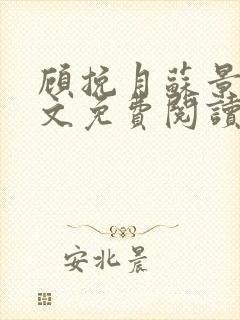 顾挽月蘇景
文免費閱讀
安北晨